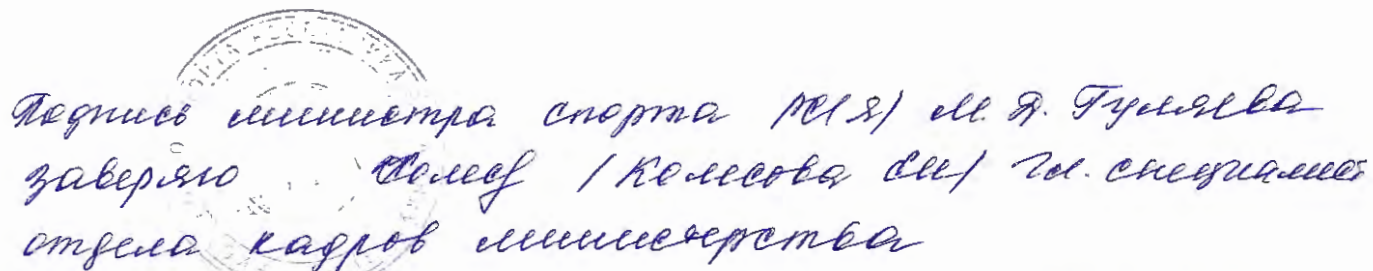 Подпись министра спорта РС(Я) М.Д. Гуляева
заверяю /Колесова ЕН/ Гл. специалист
отдела кадров министерства